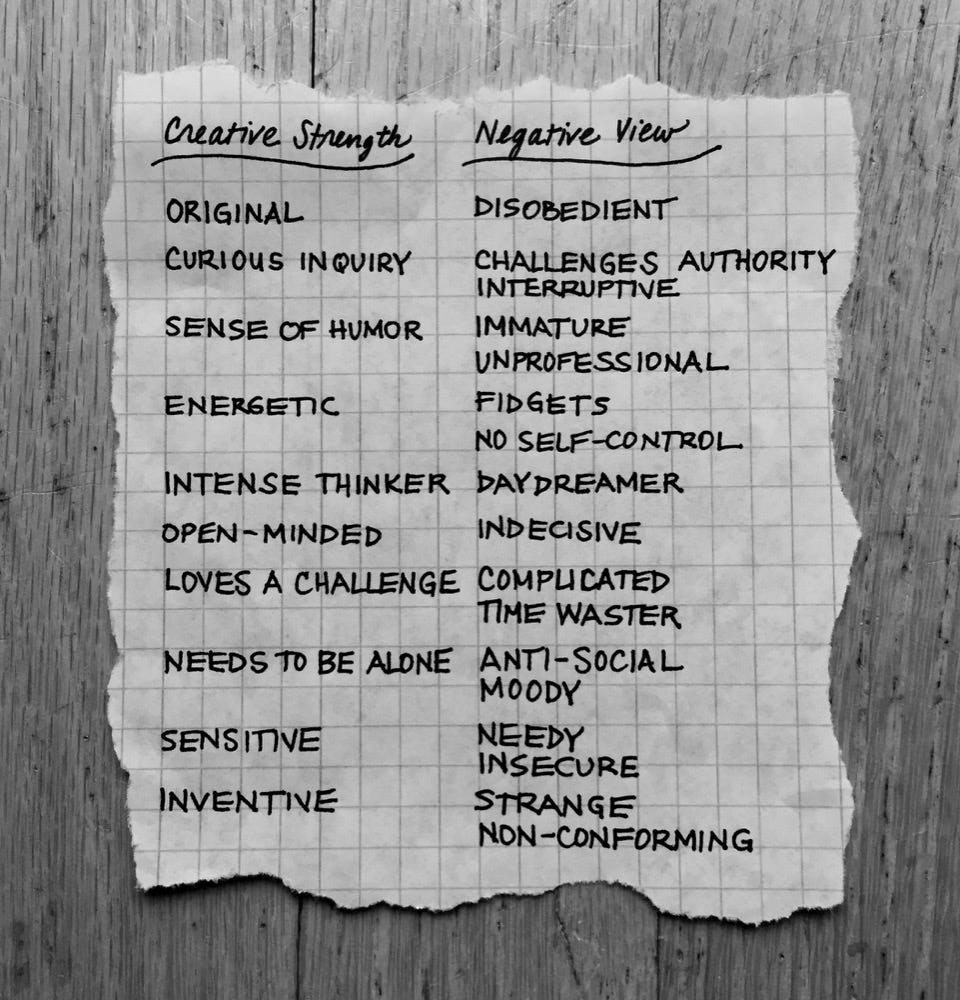 Creative Strength Negative View
ORIGINAL DISOBEDIENT
CURIOUS INQUIRY CHALLENGES AUTHORITY
INTERRUPTIVE
SENSE OF HUMOR IMMATURE
UNPROFESSIONAL
ENERGETIC FIDGETS
NO SELF-CONTROL
INTENSE THINKER DAYDREAMER
OPEN-MINDED INDECISIVE
LOVES A CHALLENGE COMPLICATED
TIME WASTER
NEEDS TO BE ALONE ANTI-SOCIAL
MOODY
SENSITIVE NEEDY
INSECURE
INVENTIVE STRANGE
NON-CONFORMING